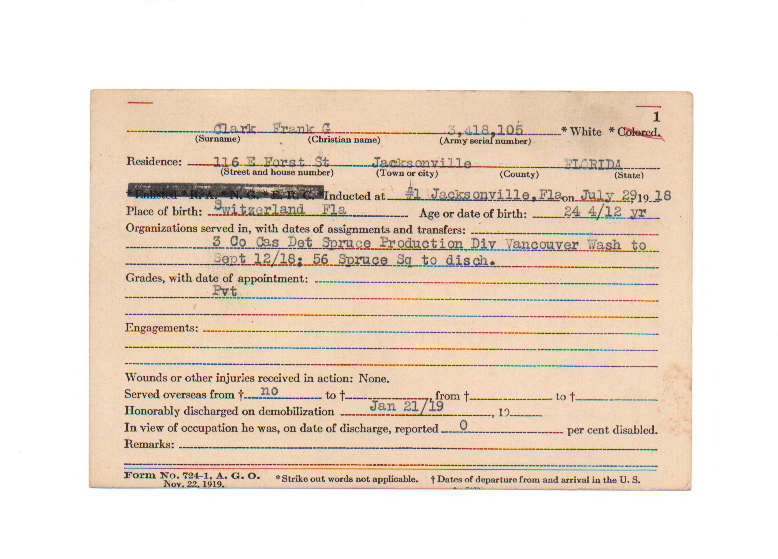 1
Clark Frank G 3,418,105 * White * Colored.
(Surname) (Christian name) (Army serial number)
Residence: 116 E Forst St Jacksonville FLORIDA
(Street and house number) (Town or city) (County) (State)
Inducted at #1 Jacksonville, Fla on July 29, 19 18
Place of birth: Switzerland Fla Age or date of birth: 24 4/12 yr
Organizations served in, with dates of assignments and transfers:
3 Co Cas Det Spruce Production Div Vancouver Wash to
Sept 12/18; 56 Spruce Sq to disch.
Grades, with date of appointment:
Pvt
Engagements:
Wounds or other injuries received in action: None.
Served overseas from † no to † , from † to †
Honorably discharged on demobilization Jan 21/19 , 19
In view of occupation he was, on date of discharge, reported 0 per cent disabled.
Remarks:
Form No. 724-1, A. G. O. * Strike out words not applicable. † Dates of departure from and arrival in the U. S.
Nov. 22, 1919.